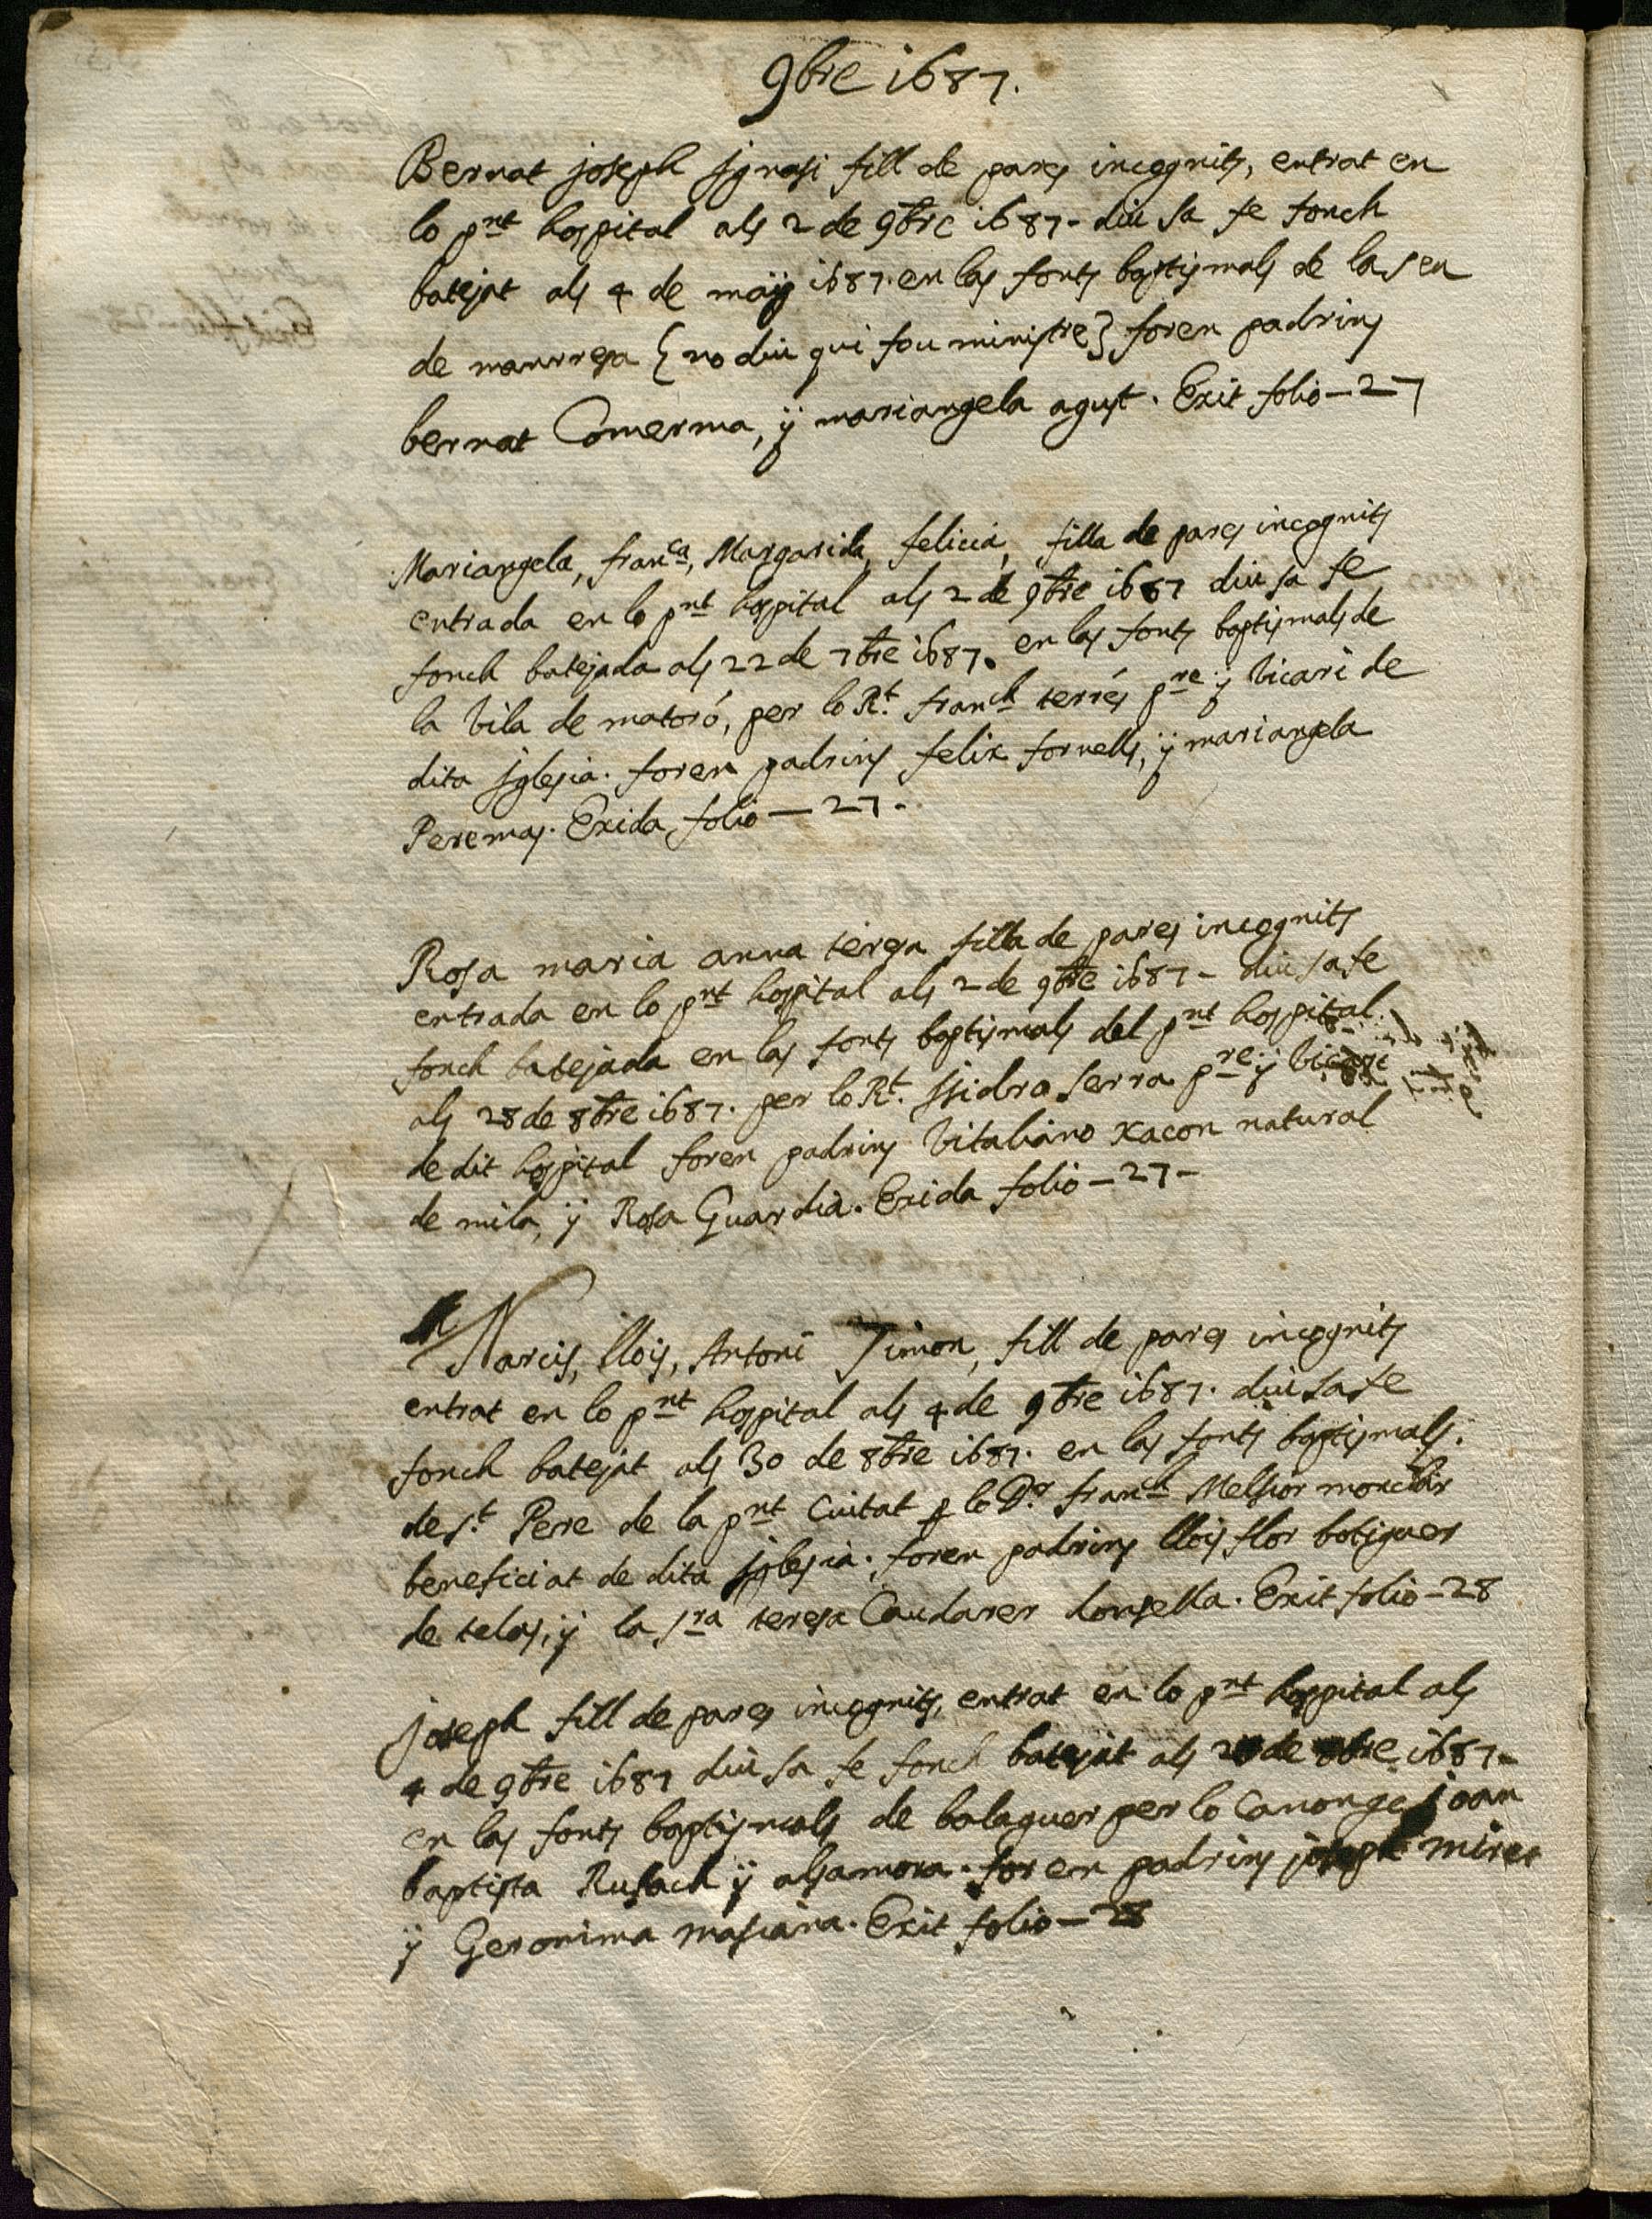 9bre 1687.
Bernat joseph Ignasi fill de pares incognits, entrat en
lo pnt hospital als 2 de 9bre 1687 - diu sa fe fonch
batejat als 4 de maÿg 1687. en las fonts baptismals de la seu
de manrresa {no diu qui fou ministre} foren padrins
bernat Comerma, ÿ mariangela agust. Exit folio - 27
Mariangela, franca, Margarida, felicia, filla de pares incognits
entrada en lo pnt hospital als 2 de 9bre 1687 diu sa fe
fonch batejada als 22 de 7bre 1687. en las fonts baptismals de
la vila de mataró, per lo Rt. franch terrés pre ÿ vicari de
dita Iglesia. foren padrins felix fornells, ÿ mariangela
Peremas. Exida folio - 27.
Rosa maria anna teresa filla de pares incognits
entrada en lo pnt hospital als 2 de 9bre 1687 - diu sa fe
fonch batejada en las fonts baptismals del pnt hospital.
als 28 de 8bre 1687. per lo Rt. Isidro Serra pre ÿ vicari
de dit hospital foren padrins vitaliano xacon natural
de mila, ÿ Rosa Guardia. Exida folio - 27 -
Narcis, llois, Antoni Simon, fill de pares incognits
entrat en lo pnt hospital als 4 de 9bre 1687. diu sa fe
fonch batejat als 30 de 8bre 1687. en las fonts baptismals.
de st. Pere de la pnt Ciutat p lo Dr. franch Melsior
beneficiat de dita Iglesia. foren padrins llois flor botiguer
de telas, ÿ la sra teresa Caudarer donsella. Exit folio - 28
joseph fill de pares incognits, entrat en lo pnt hospital als
4 de 9bre 1687 diu sa fe fonch batejat als de 1687 -
en las fonts baptismals de balaguer per lo Canonge joan
baptista Rufach ÿ alsamora. foren padrins joseph miret
ÿ Geronima masiana. Exit folio - 28